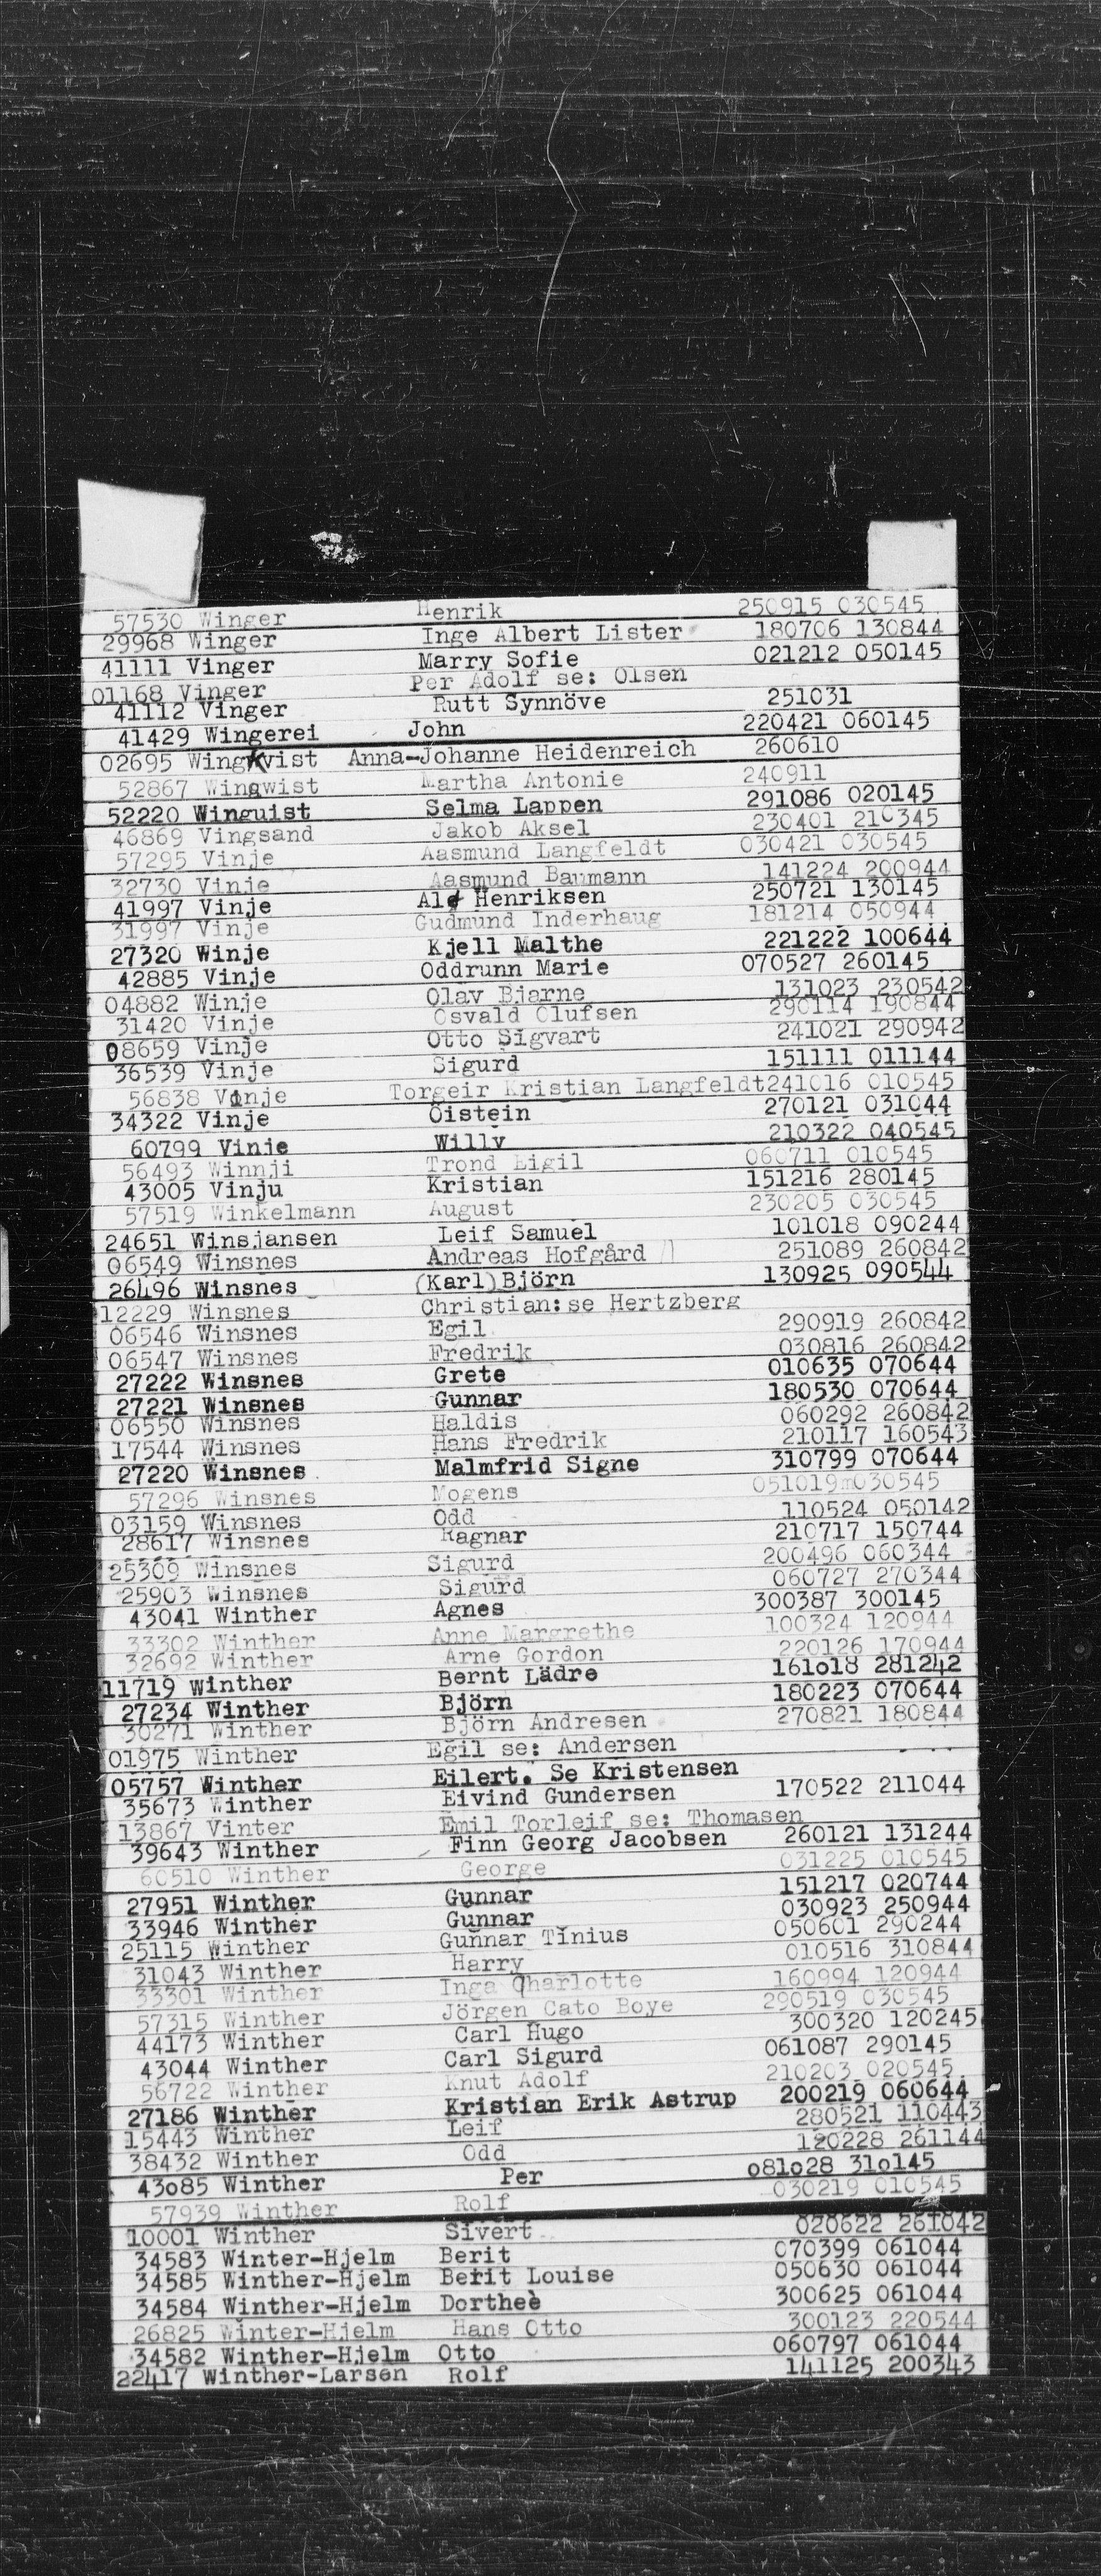 57530 Winger Henrik 250915 030545
29968 Winger Inge Albert Lister 180706 130844
41111 Vinger Marry Sofie 021212 050145
01168 Vinger Per Adolf se: Olsen
41112 Vinger Rutt Synnöve 251031
41429 Wingerei John 220421 060145
02695 Wingkvist Anna-Johanne Heidenreich 260610
52867 Wingwist Martha Antonie 240911
52220 Winquist Selma Lappen 291086 020145
46869 Vingsand Jakob Aksel 230401 210345
57295 Vinje Aasmund Langfeldt 030421 030545
32730 Vinje Aasmund Baumann 141224 200944
41997 Vinje Alf Henriksen 250721 130145
31997 Vinje Gudmund Inderhaug 181214 050944
27320 Winje Kjell Malthe 221222 100644
42885 Vinje Oddrunn Marie 070527 260145
04882 Winje Olav Bjarne 131023 230542
31420 Vinje Osvald Olufsen 290114 190844
08659 Vinje Otto Sigvart 241021 290942
36539 Vinje Sigurd 151111 011144
56838 Vinje Torgeir Kristian Langfeldt 241016 010545
34322 Vinje Öistein 270121 031044
60799 Vinje Willy 210322 040545
56493 Winnji Trond Eigil 060711 010545
43005 Vinju Kristian 151216 280145
57519 Winkelmann August 230205 030545
24651 Winsjansen Leif Samuel 101018 090244
06549 Winsnes Andreas Hofgård 251089 260842
26496 Winsnes (Karl) Björn 130925 090544
12229 Winsnes Christian: se Hertzberg
06546 Winsnes Egil 290919 260842
06547 Winsnes Fredrik 030816 260842
27222 Winsnes Grete 010635 070644
27221 Winsnes Gunnar 180530 070644
06550 Winsnes Haldis 060292 260842
17544 Winsnes Hans Fredrik 210117 160543
27220 Winsnes Malmfrid Signe 310799 070644
57296 Winsnes Mogens 051019 030545
03159 Winsnes Odd 110524 050142
28617 Winsnes Ragnar 210717 150744
25309 Winsnes Sigurd 200496 060344
25903 Winsnes Sigurd 060727 270344
43041 Winther Agnes 300387 300145
33302 Winther Anne Margrethe 100324 120944
32692 Winther Arne Gordon 220126 170944
11719 Winther Bernt Lädre 161018 281242
27234 Winther Björn 180223 070644
30271 Winther Björn Andresen 270821 180844
01975 Winther Egil se: Andersen
05757 Winther Eilert. Se Kristensen
35673 Winther Eivind Gundersen 170522 211044
13867 Vinter Emil Torleif se: Thomasen
39643 Winther Finn Georg Jacobsen 260121 131244
60510 Winther George 031225 010545
27951 Winther Gunnar 151217 020744
33946 Winther Gunnar 030923 250944
25115 Winther Gunnar Tinius 050601 290244
31043 Winther Harry 010516 310844
33301 Winther Inga Charlotte 160994 120944
57315 Winther Jörgen Cato Boye 290519 030545
44173 Winther Carl Hugo 300320 120245
43044 Winther Carl Sigurd 061087 290145
56722 Winther Knut Adolf 210203 020545
27186 Winther Kristian Erik Astrup 200219 060644
15443 Winther Leif 280521 110443
38432 Winther Odd 120228 261144
43085 Winther Per 081028 310145
57939 Winther Rolf 030219 010545
10001 Winther Sivert 020622 261042
34583 Winter-Hjelm Berit 070399 061044
34585 Winther-Hjelm Berit Louise 050630 061044
34584 Winther-Hjelm Dortheè 300625 061044
26825 Winter-Hjelm Hans Otto 300123 220544
34582 Winther-Hjelm Otto 060797 061044
22417 Winther-Larsen Rolf 141125 200343